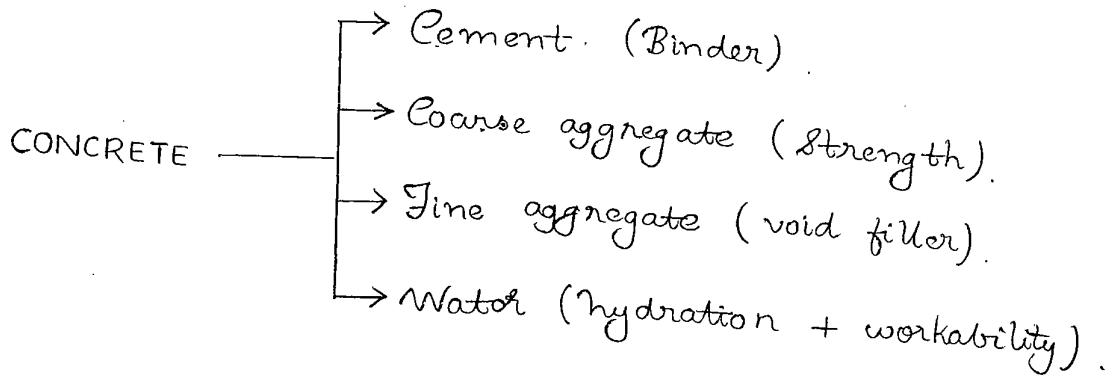 Cement. (Binder).
Coarse aggregate (Strength).
CONCRETE
Fine aggregate (void filler).
Water (hydration + workability).